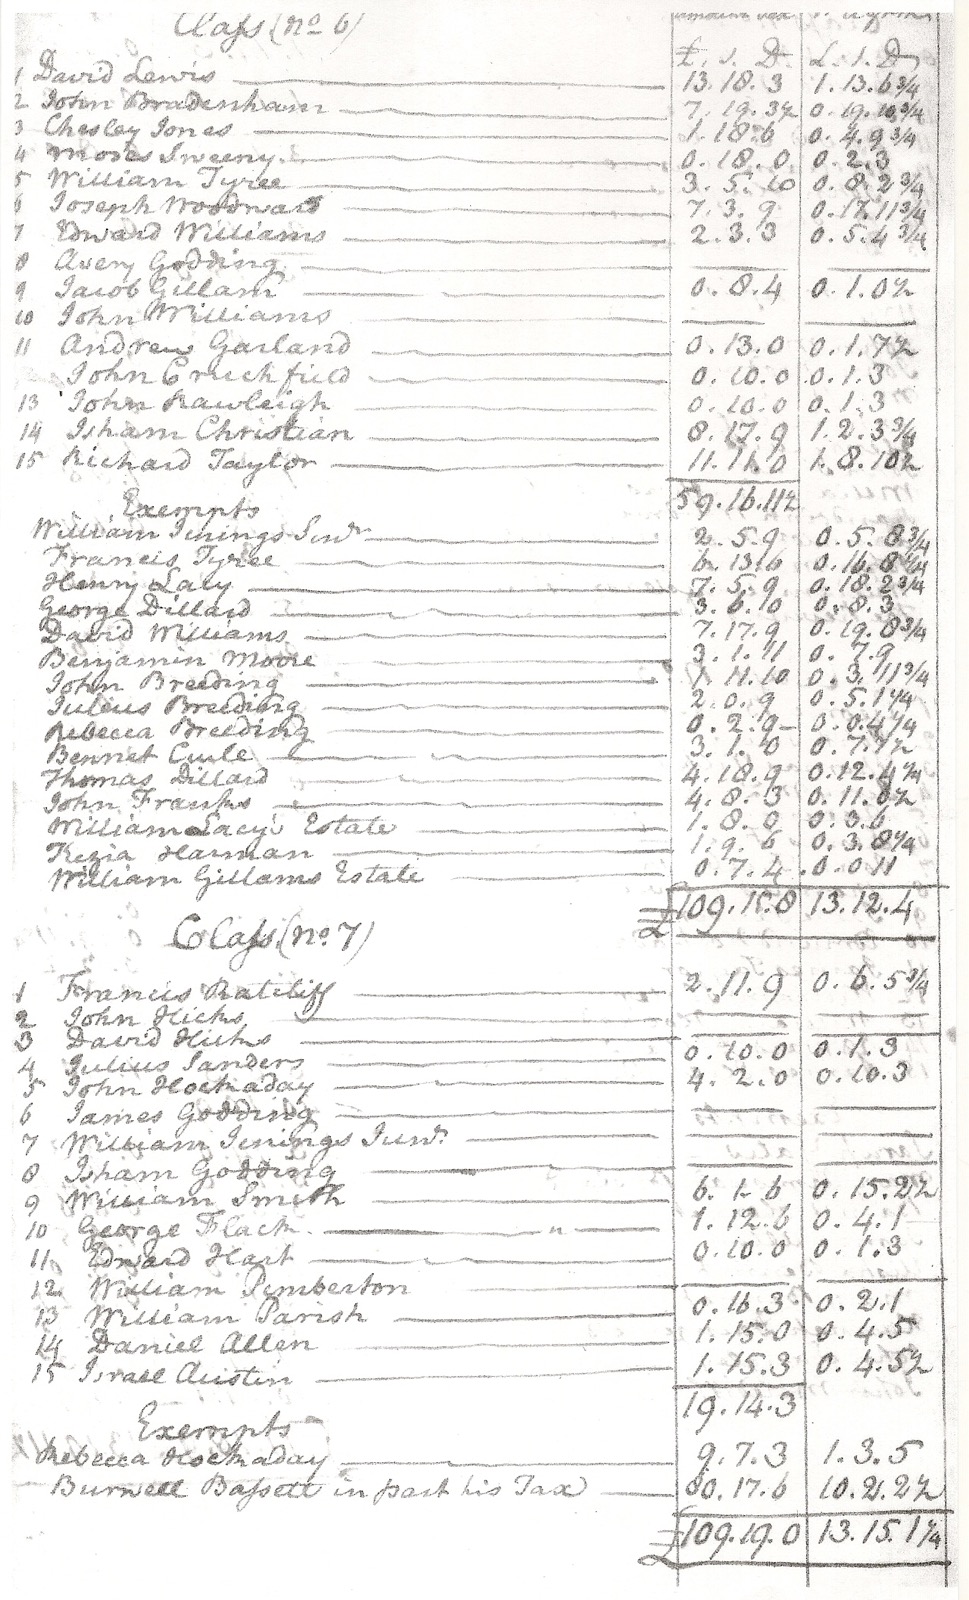 Class (No. 6)
£. S. D £. S. D
1 David Lewis 13.18.3 1.13.6¾
2 John Bradenham 7.19.3½ 0.19.10¾
3 Chesley Jones 1.18.6 0.4.9¾
4 Moses Sweeny 0.18.0 0.2.3
5 William Tyree 3.5.10 0.8.2¾
6 Joseph Woodward 7.3.9 0.17.11¾
7 Edward Williams 2.3.3 0.5.4¾
8 Avery Godding
9 Jacob Gillam 0.8.4 0.1.0½
10 John Williams
11 Andrew Garland 0.13.0 0.1.7½
John Cruchfield 0.10.0 0.1.3
13 John Rawleigh 0.10.0 0.1.3
14 Isham Christian 8.17.9 1.2.3¾
15 Richard Taylor 11.11.0 1.8.10½
59.16.11½
Exempts
William Jinings Senr 2.5.9 0.5.8¾
Francis Tyree 6.13.6 0.16.8¼
Henry Lacy 7.5.9 0.18.2¾
George Dillard 3.6.10 0.8.3
David Williams 7.17.9 0.19.8¾
Benjamin Moore 3.1.11 0.7.9
John Breeding 1.11.10 0.3.11¾
Julius Breeding 2.0.9 0.5.1¼
Rebecca Breeding 0.2.9 0.0.4¼
Bennet Curle 3.1.0 0.7.7½
Thomas Dillard 4.18.9 0.12.4¼
John Franks 4.8.3 0.11.0½
William Lacy's Estate 1.8.0 0.3.6
Kezia Harman 1.9.6 0.3.8¼
William Gillams Estate 0.7.4 0.0.11
£109.15.8 13.12.4
Class (No. 7)
1 Francis Ratcliff 2.11.9 0.6.5¾
2 John Hicks
3 David Hicks
4 Julius Sanders 0.10.0 0.1.3
5 John Hockaday 4.2.0 0.10.3
6 James Godding
7 William Jinings Junr.
8 Isham Godding
9 William Smith 6.1.6 0.15.2½
10 George Flack 1.12.6 0.4.1
11 Edward Hart 0.10.0 0.1.3
12 William Pemberton
13 William Parish 0.16.3 0.2.1
14 Daniel Allen 1.15.0 0.4.5
15 Israel Austin 1.15.3 0.4.5½
19.14.3
Exempts
Rebecca Hockaday 9.7.3 1.3.5
Burwell Bassett in part his Tax 80.17.6 10.2.2½
£109.19.0 13.15.1¼